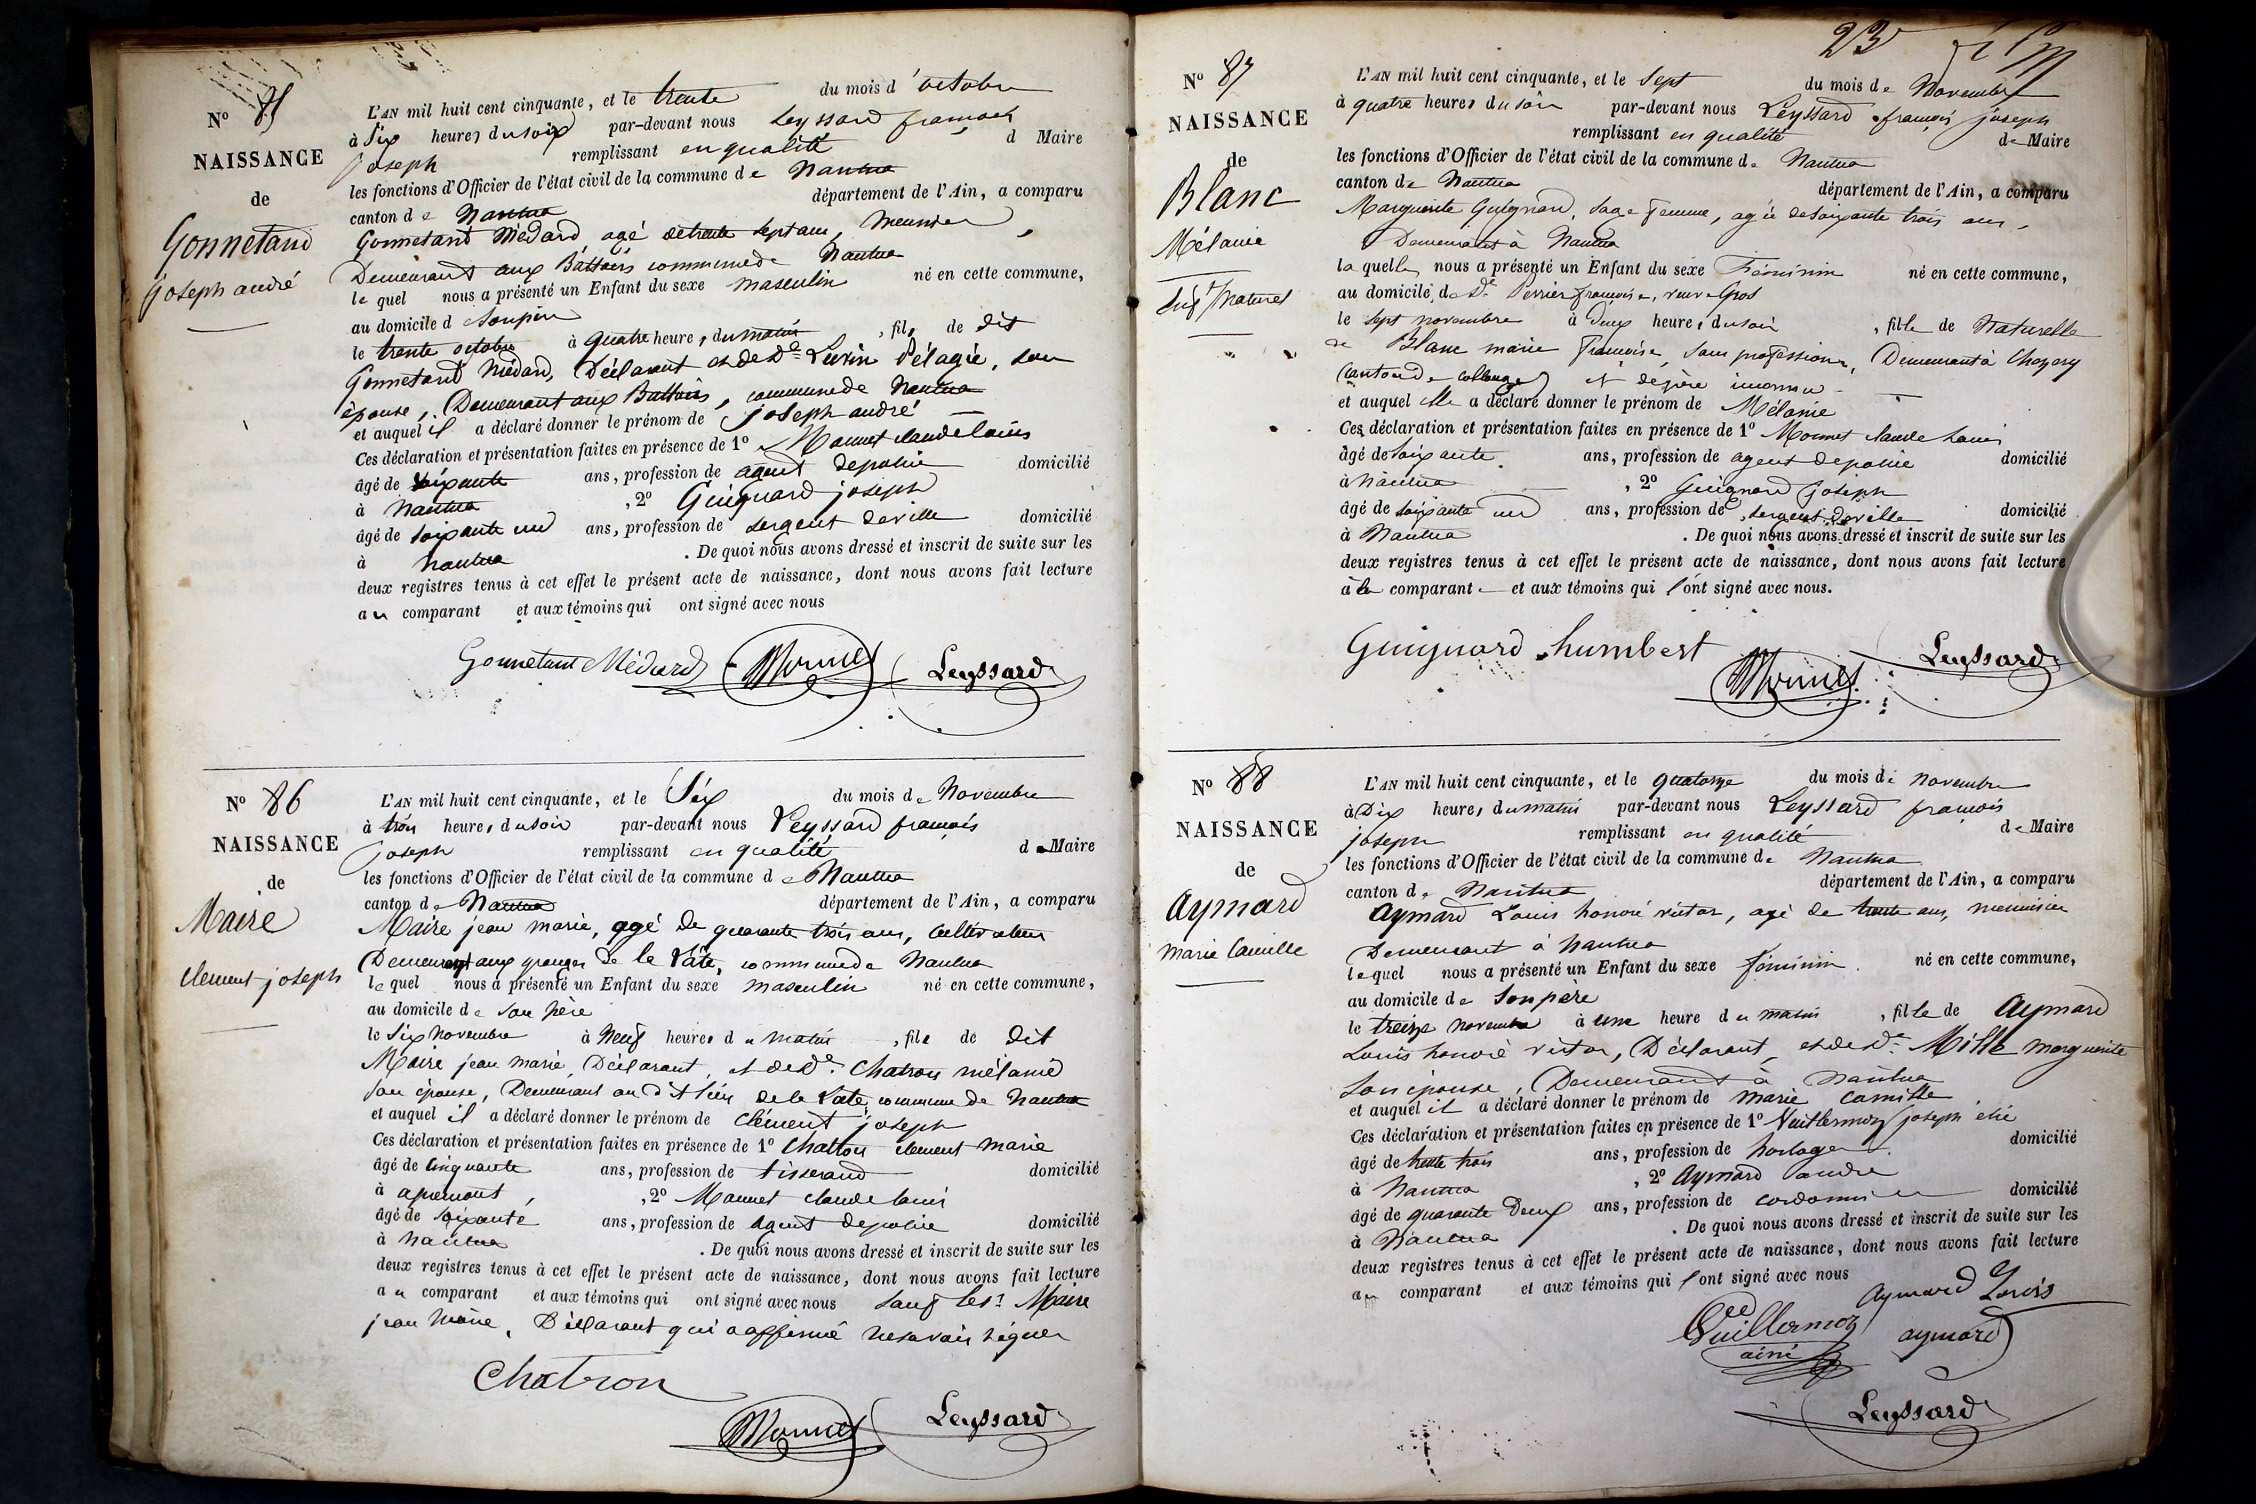 N° 85
NAISSANCE
de
Gonnetand
joseph andré
L'AN mil huit cent cinquante, et le trente du mois d'octobre
à Six heures du soir par-devant nous Leyssard françois
joseph remplissant en qualité d Maire
les fonctions d'Officier de l'état civil de la commune de Nantua
canton de Nantua département de l'Ain, a comparu
Gonnetand Médard agé de trente sept ans, meunier,
Demeurant aux Battoirs commune de Nantua
lequel nous a présenté un Enfant du sexe masculin né en cette commune,
au domicile d Son père
le trente octobre à quatre heures du matin, fils de dit
Gonnetand Médard, Déclarant et de De Lurin Pélagie, son
épouse, Demeurant aux Battoirs, commune de Nantua
et auquel il a déclaré donner le prénom de joseph andré
Ces déclaration et présentation faites en présence de 1° Monnet claude louis
âgé de soixante ans, profession de agent de police domicilié
à Nantua, 2° Guignard joseph
âgé de soixante un ans, profession de sergent de ville domicilié
à Nantua. De quoi nous avons dressé et inscrit de suite sur les
deux registres tenus à cet effet le présent acte de naissance, dont nous avons fait lecture
au comparant et aux témoins qui ont signé avec nous
Gonnetand Médard Monnet Leyssard
N° 86
NAISSANCE
de
Maire
clement joseph
L'AN mil huit cent cinquante, et le Six du mois de Novembre
à trois heures du soir par-devant nous Leyssard françois
joseph remplissant en qualité de Maire
les fonctions d'Officier de l'état civil de la commune de Nantua
canton de Nantua département de l'Ain, a comparu
Maire jean marie, agé de quarante trois ans, cultivateur
Demeurant aux granges de le Late, commune de Nantua
lequel nous a présenté un Enfant du sexe masculin né en cette commune,
au domicile de son père
le Six Novembre à Neuf heures du matin, fils de dit
Maire jean marie, Déclarant, et de De Chatron mélanie
son épouse, Demeurant au dit lieu de le Late, commune de Nantua
et auquel il a déclaré donner le prénom de clément joseph
Ces déclaration et présentation faites en présence de 1° Chatron clement marie
âgé de cinquante ans, profession de tisserand domicilié
à apremont, 2° Monnet claude louis
âgé de soixante ans, profession de agent de police domicilié
à Nantua. De quoi nous avons dressé et inscrit de suite sur les
deux registres tenus à cet effet le présent acte de naissance, dont nous avons fait lecture
au comparant et aux témoins qui ont signé avec nous sauf le sr Maire
jean Marie, Déclarant qui a affirmé ne savoir signer
Chatron
Monnet Leyssard
23
N° 87
NAISSANCE
de
Blanc
Mélanie
L'AN mil huit cent cinquante, et le Sept du mois de Novembre
à quatre heures du soir par-devant nous Leyssard françois joseph
remplissant en qualité de Maire
les fonctions d'Officier de l'état civil de la commune de Nantua
canton de Nantua département de l'Ain, a comparu
Marguerite Guignard, sage femme, agée de soixante trois ans,
Demeurant à Nantua
laquelle nous a présenté un Enfant du sexe Féminin né en cette commune,
au domicile de De Perrier françoise, veuve Gros
le sept novembre à deux heures du soir, fille de Naturelle
de Blanc marie françoise, sans profession, Demeurant à Chezery
canton de collonge, et de père inconnu
et auquel elle a déclaré donner le prénom de Mélanie
Ces déclaration et présentation faites en présence de 1° Monnet claude louis
âgé de soixante ans, profession de agent de police domicilié
à Nantua, 2° Guignard joseph
âgé de soixante un ans, profession de sergent de ville domicilié
à Nantua. De quoi nous avons dressé et inscrit de suite sur les
deux registres tenus à cet effet le présent acte de naissance, dont nous avons fait lecture
à la comparante et aux témoins qui l'ont signé avec nous.
Guignard humbert Monnet Leyssard
N° 88
NAISSANCE
de
Aymard
Marie Camille
L'AN mil huit cent cinquante, et le quatorze du mois de novembre
à Dix heures du matin par-devant nous Leyssard françois
joseph remplissant en qualité de Maire
les fonctions d'Officier de l'état civil de la commune de Nantua
canton de Nantua département de l'Ain, a comparu
Aymard Louis honoré victor, agé de trente ans, menuisier
Demeurant à Nantua
lequel nous a présenté un Enfant du sexe féminin né en cette commune,
au domicile de Son père
le treize novembre à une heure du matin, fille de Aymard
Louis honoré victor, Déclarant, et de De Mille marguerite
Son épouse, Demeurant à Nantua
et auquel il a déclaré donner le prénom de marie Camille
Ces déclaration et présentation faites en présence de 1° Vuillermoz joseph élie
âgé de trente trois ans, profession de horloger domicilié
à Nantua, 2° Aymard andré
âgé de quarante Deux ans, profession de cordonnier domicilié
à Nantua. De quoi nous avons dressé et inscrit de suite sur les
deux registres tenus à cet effet le présent acte de naissance, dont nous avons fait lecture
au comparant et aux témoins qui l'ont signé avec nous
Aymard Louis
Vuillermoz aymard
ainé
Leyssard